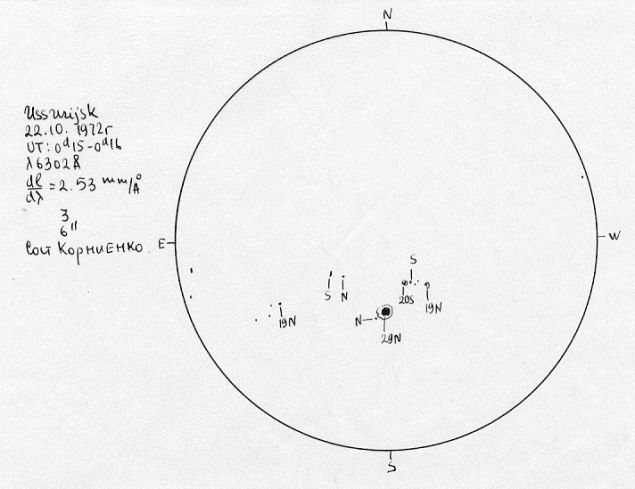 N
Ussurijsk
22.10.1972г
UT: 0ᵈ15-0ᵈ16
λ6302Å
dl/dλ = 2.53 mm/Å
3
6"
КОРНИЕНКО.
E
W
S
S N
20S
19N
19N
N
29N
S